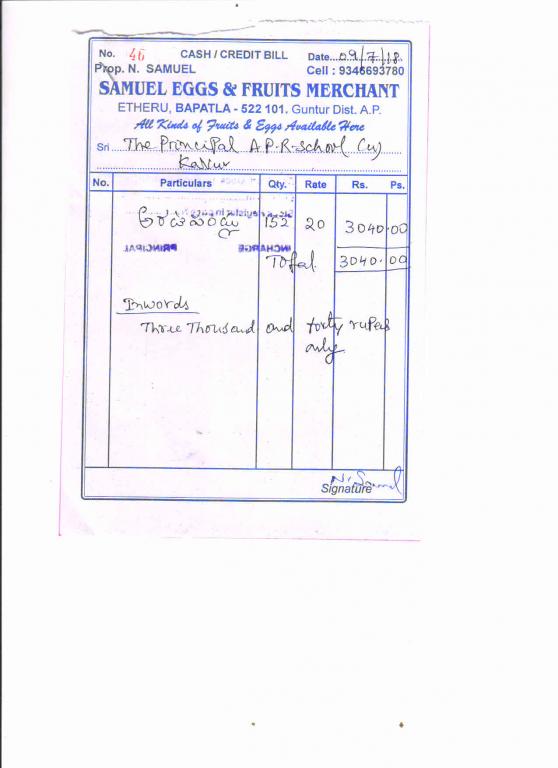 No. 46 CASH / CREDIT BILL Date...09/7/18
Prop. N. SAMUEL Cell : 9346693780
SAMUEL EGGS & FRUITS MERCHANT
ETHERU, BAPATLA - 522 101. Guntur Dist. A.P.
All Kinds of Fruits & Eggs Available Here
Sri The Principal A.P.R-School (u)
No. Particulars Qty. Rate Rs. Ps.
152 20 3040.00
PRINCIPAL INCHARGE
Total. 3040.00
Inwords
Three Thousand and forty rupees
only
N. Samuel
Signature